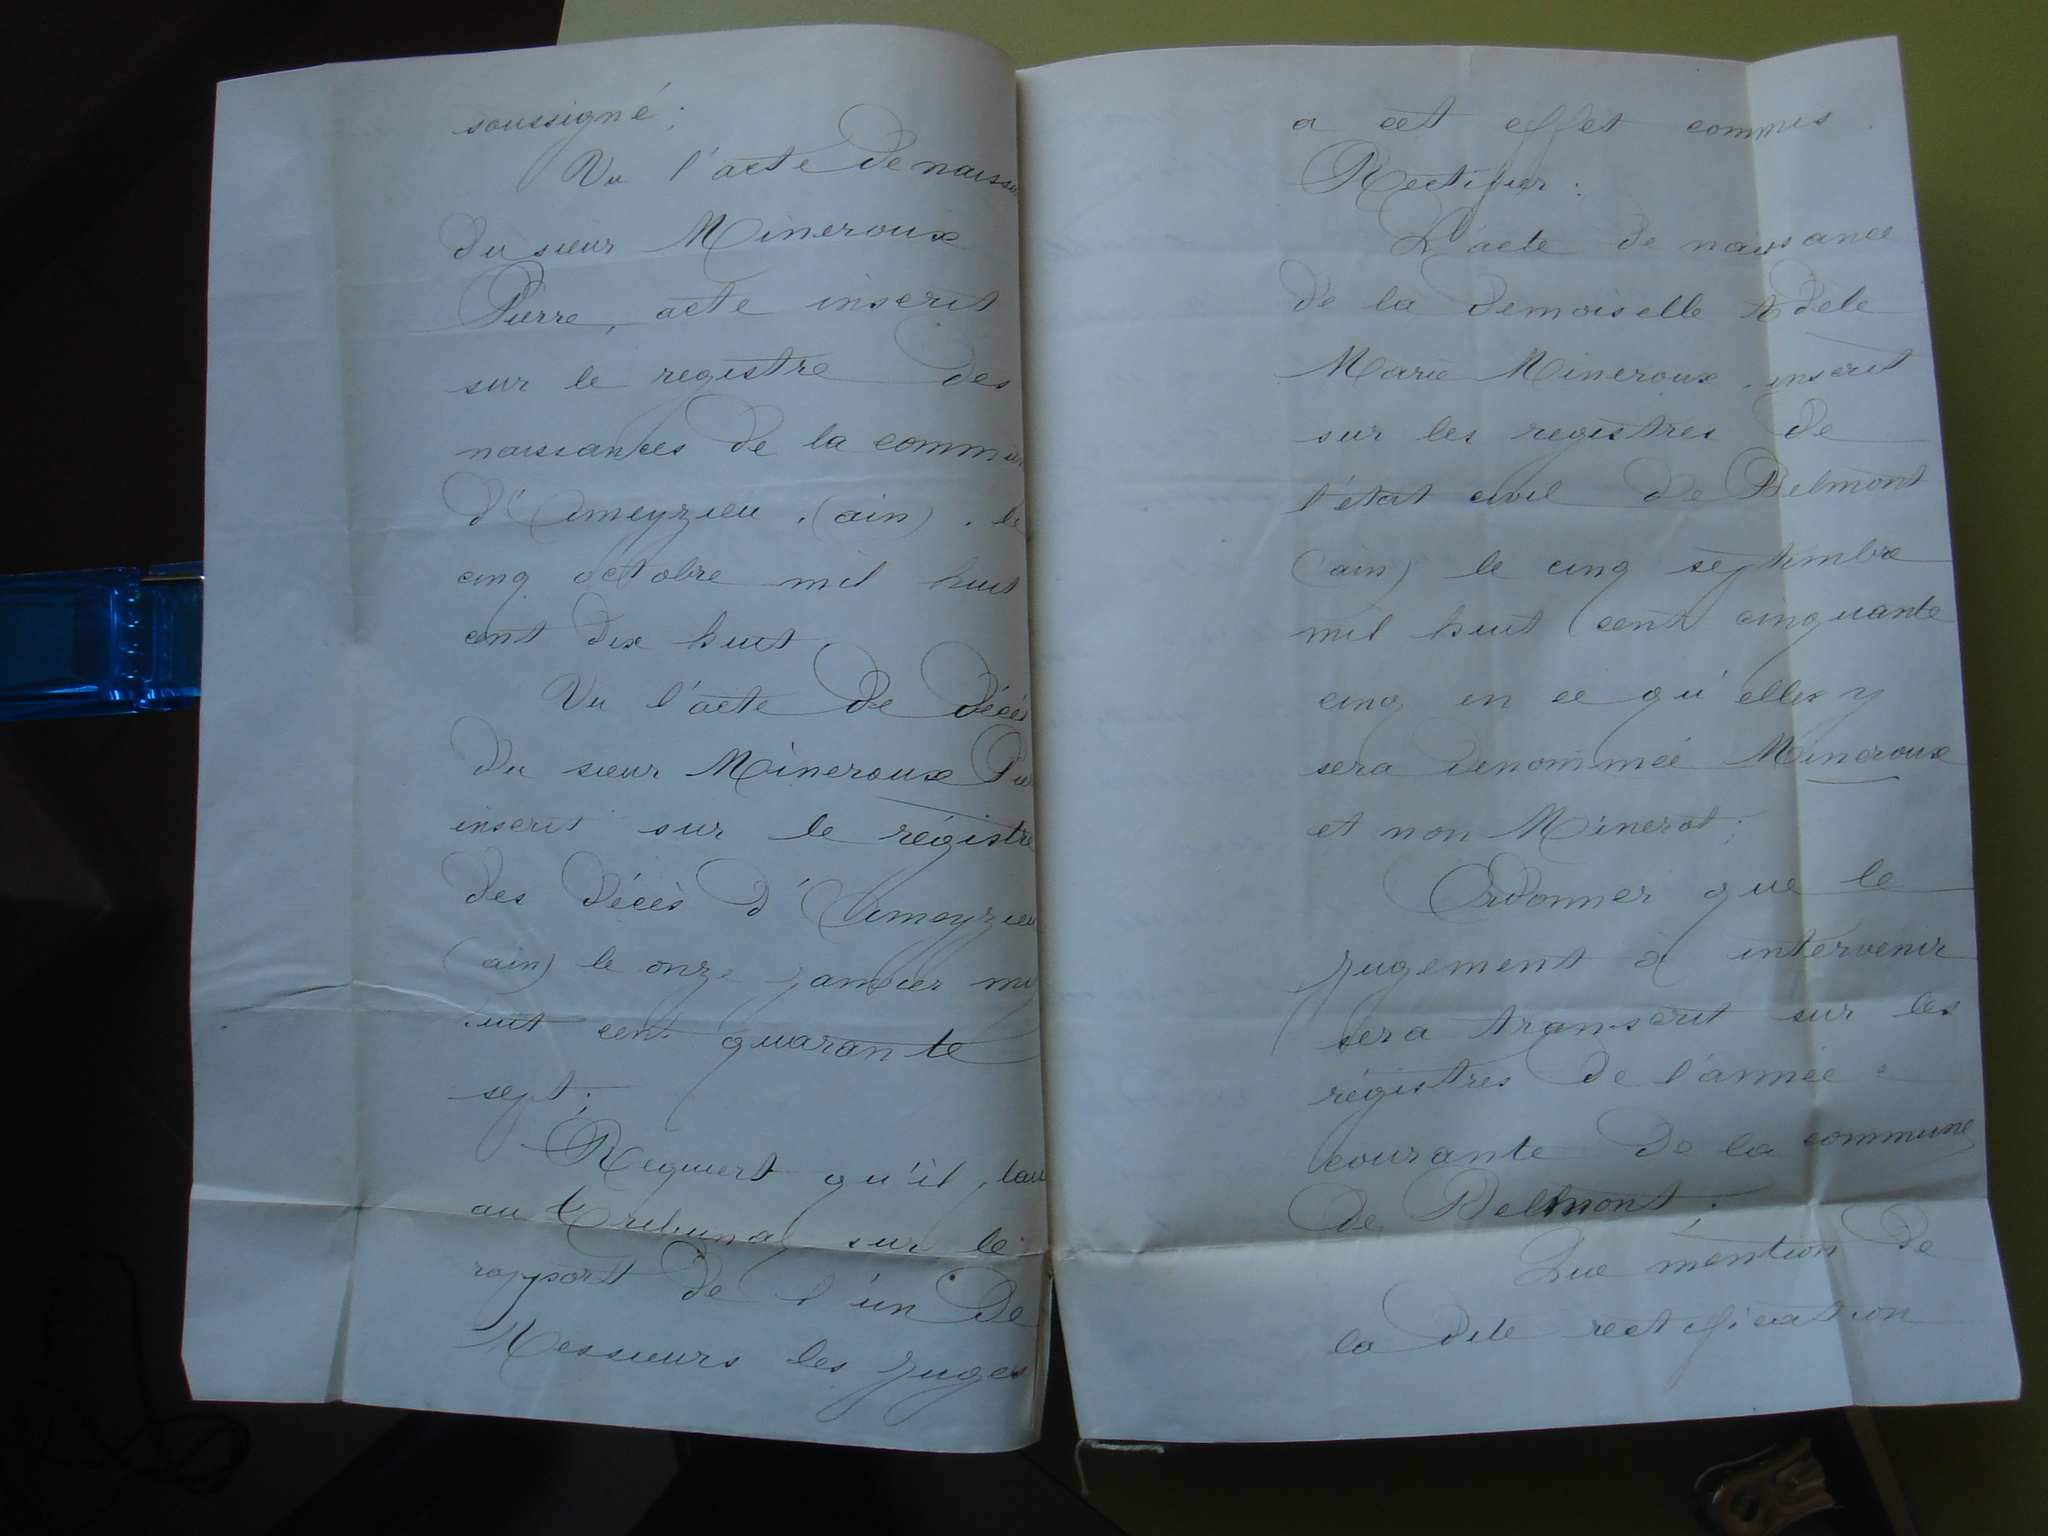 soussigné ;
Vu l'acte de naiss
du sieur Mineroux
Pierre, acte inscrit
sur le registre des
naissances de la commun
d'Ameyzieu (ain), le
cinq octobre mil huit
cent dix huit
Vu l'acte de décès
du sieur Mineroux Pie
inscrit sur le régistre
des décès d'Ameyzieu
(ain) le onze janvier mil
huit cent quarante
sept ;
Requiert qu'il
au tribunal sur le
rapport de l'un de
Messieurs les juges
a cet effet commis
Rectifier :
L'acte de naissance
de la demoiselle Adèle
Marie Mineroux inscrit
sur les registres de
l'état civil de Belmont
(ain) le cinq septembre
mil huit cent cinquante
cinq en ce qu'elle y
sera dénommée Mineroux
et non Minerot ;
Ordonner que le
jugement à intervenir
sera transcrit sur les
régistres de l'année
courante de la commune
de Belmont ;
Que mention de
la dite rectification